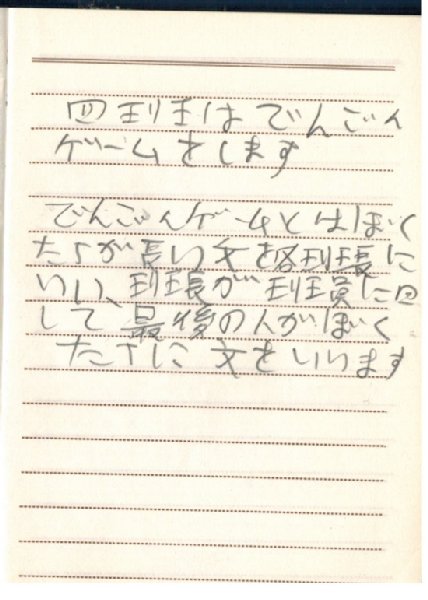 四班はでんごん
ゲームをします
でんごんゲームとはぼく
たちが長い文を各班長に
いい、班長が班員に回
して最後の人がぼく
たちに文をいいます